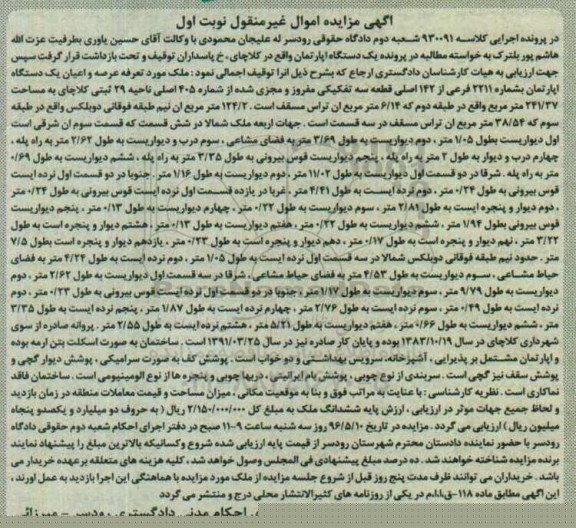 آگهی مزایده اموال غیرمنقول نوبت اول
در پرونده اجرایی کلاسه ۹۳۰۰۹۱ شعبه دوم دادگاه حقوقی رودسر له علیجان محمودی با وکالت آقای حسین یاوری بطرفیت عزت الله
هاشم پور بلترک به خواسته مطالبه در پرونده یک دستگاه آپارتمان واقع در کلاچای ، خ پاسداران توقیف و تحت بازداشت قرار گرفت سپس
جهت ارزیابی به هیات کارشناسان دادگستری ارجاع که بشرح ذیل انرا توقیف اجمالی نمود : ملک مورد تعرفه عرصه و اعیان یک دستگاه
آپارتمان بشماره ۲۲۱۱ فرعی از ۱۴۲ اصلی قطعه سه تفکیکی مفروز و مجزی شده از شماره ۴۰۵ اصلی ناحیه ۲۹ ثبتی کلاچای به مساحت
۲۴۱/۳۷ متر مربع واقع در طبقه دوم که ۶/۱۴ متر مربع ان تراس مسقف است . ۱۲۴/۲ متر مربع ان نیم طبقه فوقانی دوبلکس واقع در طبقه
سوم که ۳۸/۵۴ متر مربع ان تراس مسقف در سه قسمت است . جهات اربعه ملک شمالا در شش قسمت که قسمت سوم ان شرقی است
اول دیواریست بطول ۱/۰۵ متر ، دوم دیواریست به طول ۳/۶۹ متر به فضای مشاعی ، سوم درب و دیواریست به طول ۲/۶۲ متر به راه پله ،
چهارم درب و دیوار به طول ۲ متر به راه پله ، پنجم دیواریست قوس بیرونی به طول ۳/۳۵ متر به راه پله ، ششم دیواریست به طول ۰/۶۹
متر به راه پله . شرقا در دو قسمت اول دیواریست به طول ۱۱/۰۲ متر ، دوم دیواریست به طول ۱/۱۶ متر . جنوبا در دو قسمت اول نرده ایست
قوس بیرونی به طول ۰/۲۴ متر ، دوم نرده ایست به طول ۴/۴۱ متر ، غربا در یازده قسمت اول نرده ایست قوس بیرونی به طول ۰/۲۴ متر
، دوم دیوار و پنجره ایست به طول ۲/۸۱ متر ، سوم دیواریست به طول ۰/۲۲ متر ، چهارم دیواریست به طول ۰/۱۳ متر ، پنجم دیواریست
قوس بیرونی به طول ۱/۹۴ متر ، ششم دیواریست به طول ۰/۲۲ متر ، هفتم دیواریست به طول ۰/۱۳ متر ، هشتم دیوار و پنجره است به طول
۳/۲۲ متر ، نهم دیوار و پنجره است به طول ۰/۱۷ متر ، دهم دیوار و پنجره است به طول ۰/۲۳ متر ، یازدهم دیوار و پنجره است بطول ۷/۵
متر . حدود نیم طبقه فوقانی دوبلکس شمالا در سه قسمت اول نرده ایست به طول ۱/۰۵ متر ، دوم نرده ایست به طول ۴/۲۴ متر به فضای
حیاط مشاعی ، سوم دیواریست به طول ۴/۵۳ متر به فضای حیاط مشاعی ، شرقا در سه قسمت اول دیواریست به طول ۲/۶۲ متر ، دوم
دیواریست به طول ۹/۷۹ متر ، سوم دیواریست به طول ۱/۱۷ متر ، جنوبا در دو قسمت اول نرده ایست قوس بیرونی به طول ۰/۲۳ متر ، دوم
نرده ایست به طول ۰/۴۹ متر ، سوم نرده ایست به طول ۲/۷۶ متر ، چهارم نرده ایست به طول ۱/۸۷ متر ، پنجم نرده ایست به طول ۳/۳۵
متر ، ششم دیواریست به طول ۰/۶۶ متر ، هفتم دیواریست به طول ۵/۲۱ متر ، هشتم نرده ایست به طول ۲/۵۵ متر . پروانه صادره از سوی
شهرداری کلاچای در سال ۱۳۸۳/۱۰/۱۹ بوده و پایان کار صادره نیز در سال ۱۳۹۱/۰۳/۲۵ است . ساختمان به صورت اسکلت بتن ارمه بوده
و اپارتمان مشتمل بر پذیرایی ، آشپزخانه ، سرویس بهداشتی و دو خواب است . پوشش کف به صورت سرامیکی ، پوشش دیوار گچی و
پوشش سقف نیز گچی است . سربندی از نوع چوبی ، پوشش بام ایرانیتی ، درها چوبی و پنجره ها از نوع الومینیومی است . ساختمان فاقد
نماکاری است . نظریه کارشناسی : با عنایت به مراتب فوق و بنا به موقعیت مکانی ، میزان مساحت و قیمت معاملات منطقه در زمان بازدید
و لحاظ جمیع جهات موثر در ارزیابی ، ارزش پایه ششدانگ ملک به مبلغ کل ۲/۱۵۰/۰۰۰/۰۰۰ ریال ( به حروف دو میلیارد و یکصدو پنجاه
میلیون ریال ) ارزیابی می گردد . مزایده در تاریخ ۹۶/۵/۱۰ روز سه شنبه ساعت ۹-۱۱ صبح در دفتر اجرای احکام شعبه دوم حقوقی دادگاه
رودسر با حضور نماینده دادستان محترم شهرستان رودسر از قیمت پایه ارزیابی شده شروع وکسانیکه بالاترین مبلغ را پیشنهاد نمایند
برنده مزایده شناخته خواهند شد . ده درصد مبلغ پیشنهادی فی المجلس وصول خواهد شد ، کلیه هزینه های متعلقه برعهده خریدار می
باشد . خریداران می توانند ظرف مدت پنج روز قبل از شروع جلسه مزایده از ملک مورد مزایده با هماهنگی این اجرا بازدید به عمل اورند ،
این آگهی مطابق ماده ۱۱۸-ق.ا.ا.م در یکی از روزنامه های کثیرالانتشار محلی درج و منتشر می گردد
احکام مدنی دادگستری رودسر - میرزائی